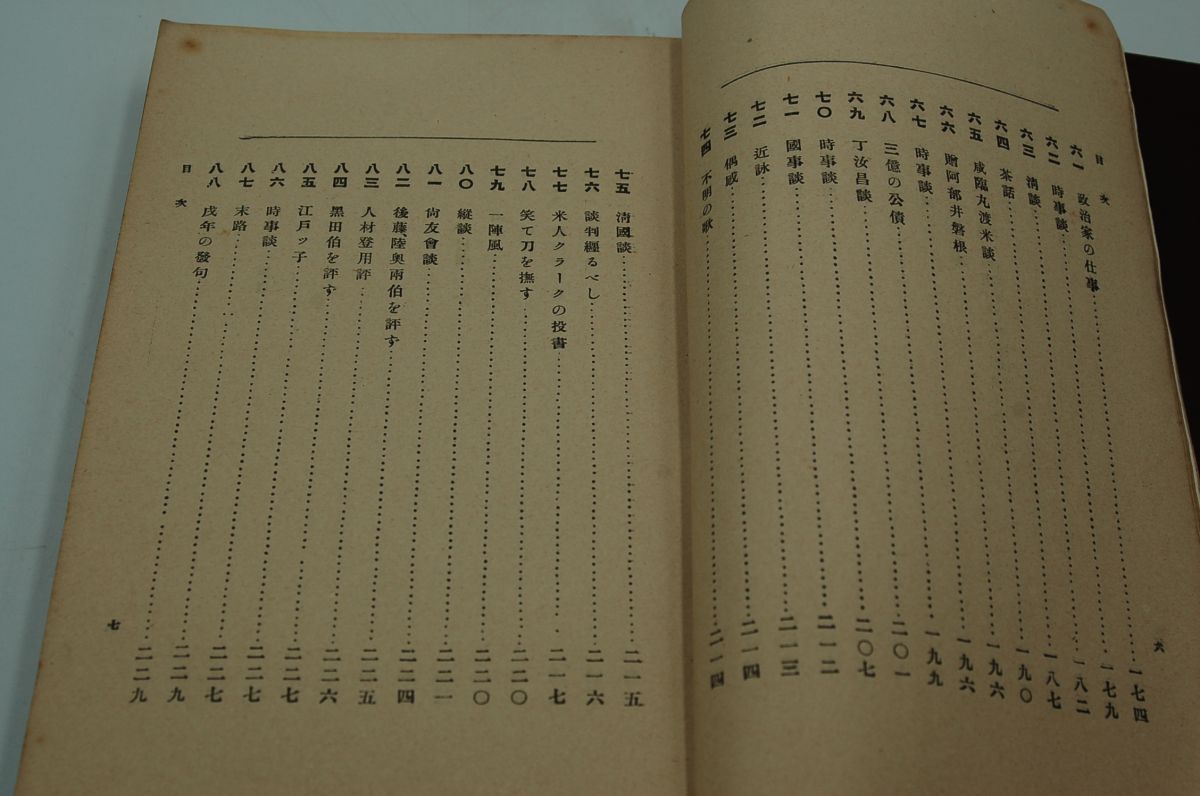 目次
六
六一 政治家の仕事……一七四
六二 時事談……一七九
六三 清談……一八二
六四 茶話……一八七
六五 咸臨丸渡米談……一九〇
六六 贈阿部井磐根……一九六
六七 時事談……一九六
六八 三億の公債……一九九
六九 丁汝昌談……二〇一
七〇 時事談……二〇七
七一 國事談……二一二
七二 近詠……二一三
七三 偶感……二一四
七四 不明の歌……二一四
七五 清國談……二一五
七六 談判纒るべし……二一六
七七 米人クラークの投書……二一七
七八 笑て刀を撫す……二二〇
七九 一陣風……二二〇
八〇 縱談……二二一
八一 尙友會談……二二四
八二 後藤、陸奥兩伯を評す……二二五
八三 人材登用評……二二六
八四 黑田伯を評す……二二七
八五 江戸ッ子……二二七
八六 時事談……二二七
八七 末路……二二九
八八 戌年の發句……二二九
目次
七